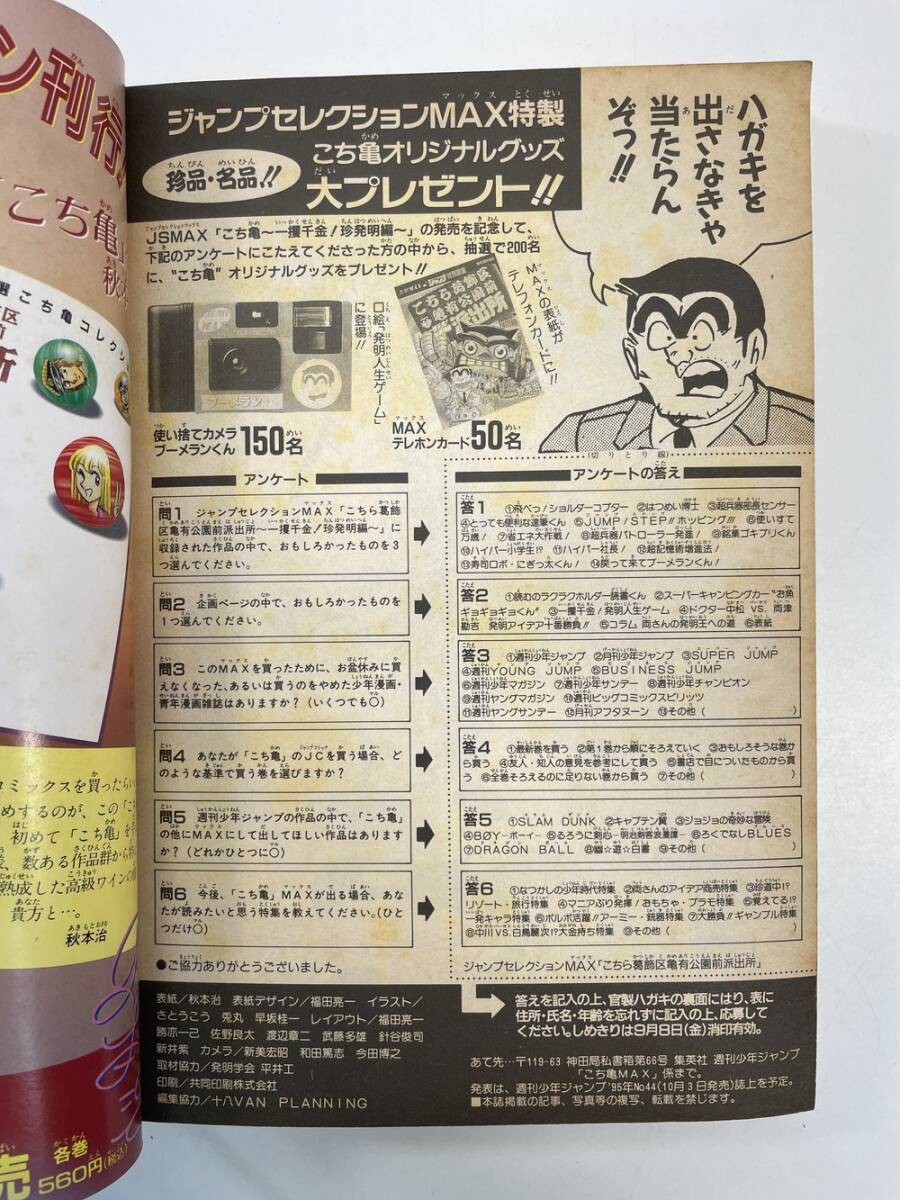 ン刊行
こち亀
秋本
選こち亀コレクシ
コミックスを買ったらい
めするのが、この「こち
初めて「こち亀」を
、数ある作品群から
熟成した高級ワインの
貴方と…。
秋本治
売 各巻
560円(税込)
ジャンプセレクションMAX特製
珍品・名品!!
こち亀オリジナルグッズ
大プレゼント!!
ハガキを
出さなきゃ
当たらん
ぞっ!!
JSMAX「こち亀〜一攫千金!珍発明編〜」の発売を記念して、
下記のアンケートにこたえてくださった方の中から、抽選で200名
に、“こち亀”オリジナルグッズをプレゼント!!
口絵「発明人生ゲーム」
に登場!!
MAXの表紙が
テレフォンカードに!!
こちら葛飾区
亀有公園前
派出所
ブーメラン
使い捨てカメラ
ブーメランくん 150名
MAX
テレホンカード 50名
アンケート
問1 ジャンプセレクションMAX「こちら葛飾
区亀有公園前派出所〜一攫千金!珍発明編〜」に
収録された作品の中で、おもしろかったものを3
つ選んでください。
問2 企画ページの中で、おもしろかったものを
1つ選んでください。
問3 このMAXを買ったために、お盆休みに買
えなくなった、あるいは買うのをやめた少年漫画・
青年漫画雑誌はありますか?(いくつでも○)
問4 あなたが「こち亀」のJCを買う場合、ど
のような基準で買う巻を選びますか?
問5 週刊少年ジャンプの作品の中で、「こち亀」
の他にMAXにして出してほしい作品はあります
か?(どれかひとつに○)
問6 今後、「こち亀」MAXが出る場合、あな
たが読みたいと思う特集を教えてください。(ひと
つだけ○)
●ご協力ありがとうございました。
(切りとり線)
アンケートの答え
答1 ①飛べっ!ショルダーコプター ②はつめい博士 ③超兵器部長センサー
④とっても便利な達筆くん ⑤JUMP!STEP!!ホッピング!!! ⑥使いすて
万歳! ⑦省エネ大作戦! ⑧超兵器パトローラー発進! ⑨銘菓ゴキブリくん
⑩ハイパー小学生!? ⑪ハイパー社長! ⑫超記憶術増進法!
⑬寿司ロボ・にぎっ太くん! ⑭戻って来てブーメランくん!
答2 ①読むのラクラクホルダー読書くん ②スーパーキャンピングカー“お魚
ギョギョギョくん” ③一攫千金!発明人生ゲーム ④ドクター中松 VS. 両津
勘吉 発明アイデア十番勝負!! ⑤コラム 両さんの発明王への道 ⑥表紙
答3 ①週刊少年ジャンプ ②月刊少年ジャンプ ③SUPER JUMP
④週刊YOUNG JUMP ⑤BUSINESS JUMP
⑥週刊少年マガジン ⑦週刊少年サンデー ⑧週刊少年チャンピオン
⑨週刊ヤングマガジン ⑩週刊ビッグコミックスピリッツ
⑪週刊ヤングサンデー ⑫月刊アフタヌーン ⑬その他( )
答4 ①最新巻を買う ②第1巻から順にそろえていく ③おもしろそうな巻か
ら買う ④友人・知人の意見を参考にして買う ⑤書店で目についたものから買
う ⑥全巻そろえるのに足りない巻から買う ⑦その他( )
答5 ①SLAM DUNK ②キャプテン翼 ③ジョジョの奇妙な冒険
④BØY―ボーイ― ⑤るろうに剣心―明治剣客浪漫譚― ⑥ろくでなしBLUES
⑦DRAGON BALL ⑧幽☆遊☆白書 ⑨その他( )
答6 ①なつかしの少年時代特集 ②両さんのアイデア商売特集 ③珍道中!?
リゾート・旅行特集 ④マニアぶり発揮!おもちゃ・プラモ特集 ⑤覚えてる!?
一発キャラ特集 ⑥ボルボ活躍!!アーミー・銃器特集 ⑦大勝負!!ギャンブル特集
⑧中川VS.白鳥麗次!?大金持ち特集 ⑨その他( )
ジャンプセレクションMAX「こちら葛飾区亀有公園前派出所」
表紙/秋本治 表紙デザイン/福田亮一 イラスト/
さとうこう 兎丸 早坂桂一 レイアウト/福田亮一
勝亦一己 佐野良太 渡辺章二 武藤多雄 針谷俊司
新井紫 カメラ/新美宏昭 和田篤志 今田博之
取材協力/発明学会 平井工
印刷/共同印刷株式会社
編集協力/十八VAN PLANNING
答えを記入の上、官製ハガキの裏面にはり、表に
住所・氏名・年齢を忘れずに記入の上、応募して
ください。しめきりは9月8日(金)消印有効。
あて先…〒119-63 神田局私書箱第66号 集英社 週刊少年ジャンプ
「こち亀MAX」係まで。
発表は、週刊少年ジャンプ'95年No44(10月3日発売)誌上を予定。
■本誌掲載の記事、写真等の複写、転載を禁じます。